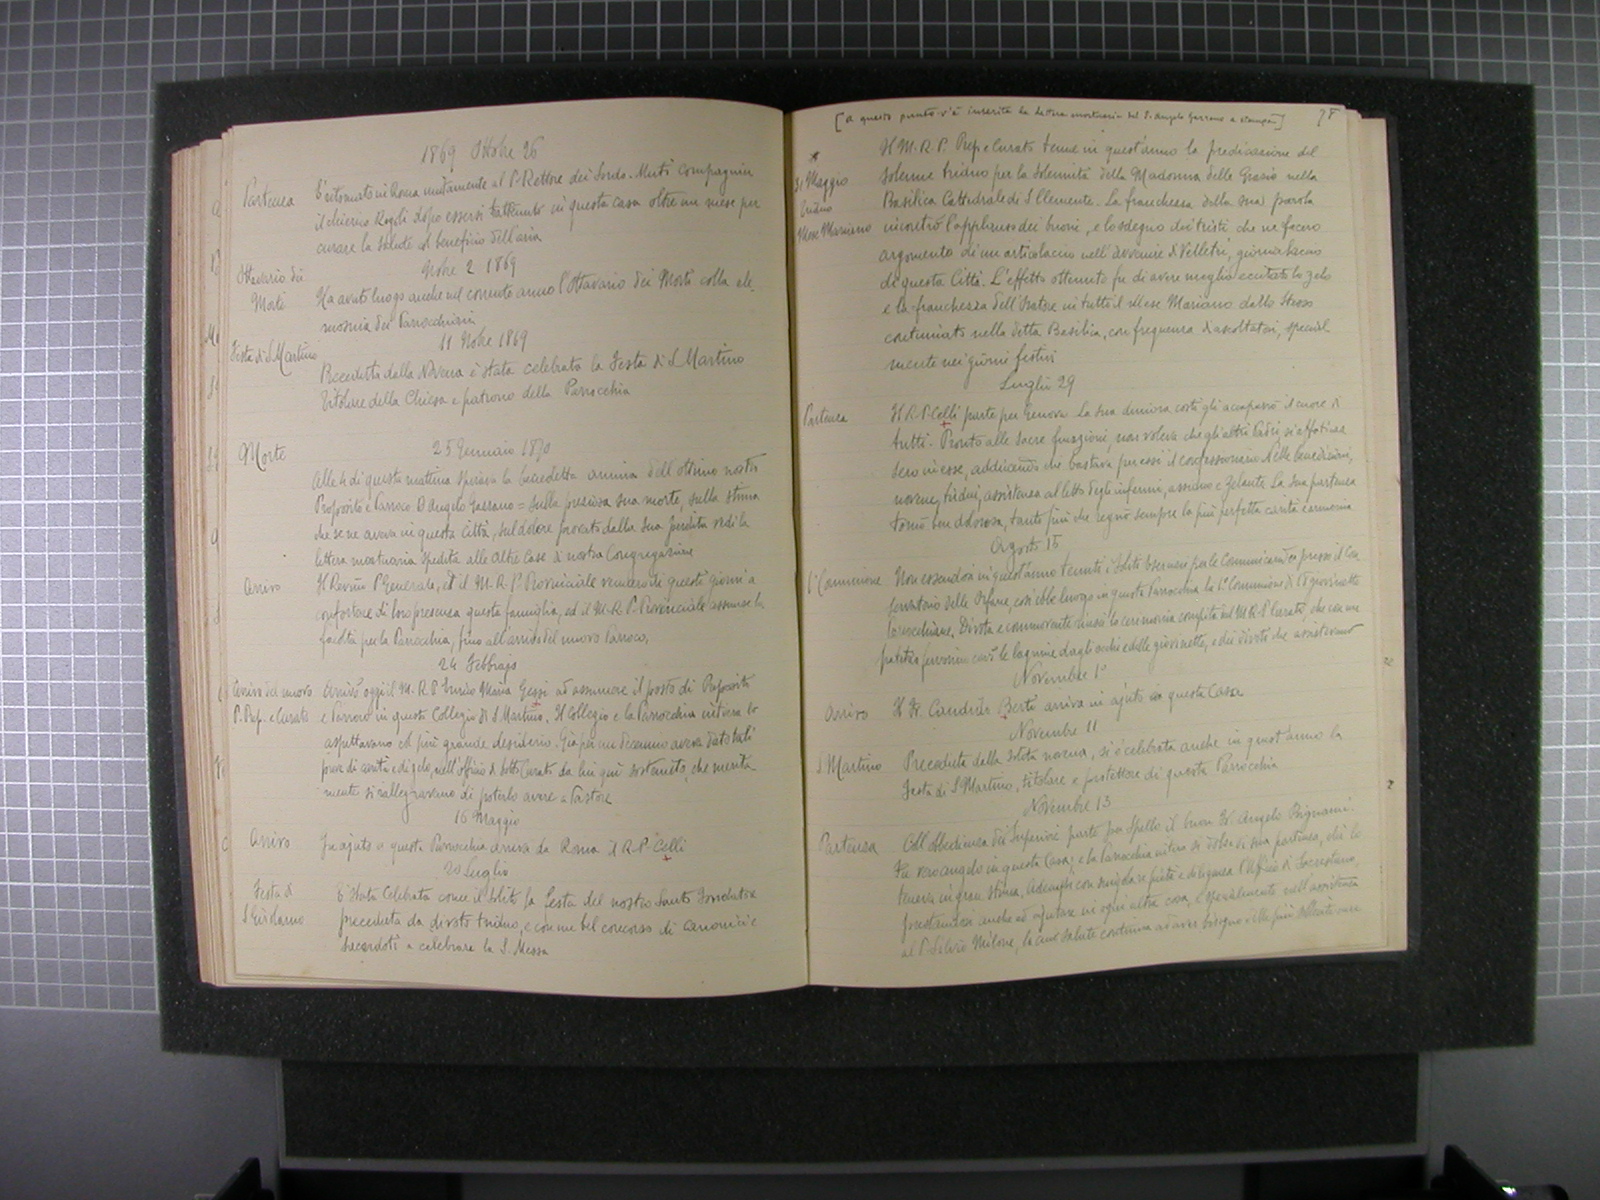 1869 Ottobre 26
Partenza
È ritornato in Roma unitamente al P. Rettore dei Sordo-Muti Compagnin
il chierico Rogoli dopo essersi trattenuto in questa casa oltre un mese per
curare la salute al beneficio dell'aria
Nobre 2 1869
Ottavario dei
Morti
Ha avuto luogo anche nel corrente anno l'Ottavario dei Morti colla ele-
mosina dei Parrocchiani
11 Nobre 1869
Festa di S. Martino
Preceduta dalla Novena è stata celebrata la Festa di S. Martino
Titolare della Chiesa e patrono della Parrocchia
25 Gennaio 1870
Morte
Alle 4 di questa mattina spirava la benedetta anima dell'ottimo nostro
Proposito e Parroco D. Angelo Gessano = sulla preziosa sua morte, sulla stima
che se ne aveva in questa città, sul dolore provato della sua perdita vedi la
lettera mortuaria spedita alle altre Case di nostra Congregazione
Arrivo
Il Revmo P. Generale, ed il M. R. P. Provinciale vennero di questi giorni a
confortare di loro presenza questa famiglia, ed il M. R. P. Provinciale assunse le
facoltà per la Parrocchia, fino all'arrivo del nuovo Parroco.
24 Febbrajo
Arrivo del nuovo
P. Prep. e Curato
Arrivò oggi il M. R. P. Enrico Maria Gessi ad assumere il posto di Preposito
e Parroco in questo Collegio di S. Martino. Il Collegio e la Parrocchia intera lo
aspettavano col più grande desiderio. Già per un decennio aveva dato tali
prove di carità e di zelo, nell'officio di Sotto Curato da lui qui sostenuto, che merita-
mente si rallegravano di poterlo avere a Pastore
16 Maggio
Arrivo
In ajuto a questa Parrocchia arriva da Roma il R. P. Celli
20 Luglio
Festa di
S. Girolamo
È stata celebrata come il solito la Festa del nostro Santo Fondatore
preceduta da divoto triduo, e con un bel concorso di canonici e
sacerdoti a celebrare la S. Messa
[a questo punto v'è inserita la lettera mortuaria del P. Angelo Gessano a stampa]
78
31 Maggio
Triduo
Mese Mariano
Il M. R. P. Prep. e Curato tenne in quest'anno la predicazione del
solenne triduo per la solennità della Madonna delle Grazie nella
Basilica Cattedrale di S. Clemente. La franchezza della sua parola
incontrò l'applauso dei buoni, e lo sdegno dei tristi che ne fecero
argomento di un articolaccio nell'avvenire di Velletri, giornalaccio
di questa Città. L'effetto ottenuto fu di avere meglio eccitato lo zelo
e la franchezza dell'Oratore in tutto il Mese Mariano dallo stesso
continuato nella detta Basilica, con frequenza di ascoltatori, special-
mente nei giorni festivi
Luglio 29
Partenza
Il R. P. Celli parte per Genova. La sua dimora costì gli accaparrò il cuore di
tutti. Pronto alle sacre funzioni, non voleva che gli altri Padri si affatica-
sero in esse, adducendo che bastava per essi il confessionario. Nelle benedizioni,
novene, tridui, assistenza al letto degli infermi, assiduo e zelante. La sua partenza
tornò ben dolorosa, tanto più che regnò sempre la più perfetta carità ed armonia
Agosto 15
1a Comunione
Non essendosi in quest'anno tenuti i soliti Esercizi per le Comunicande presso il Con-
servatorio delle Orfane, così ebbe luogo in questa Parrocchia la 1a Comunione di 18 giovinette
Parrocchiane. Divota e commovente riuscì la ceremonia compita dal M. R. P. Curato, che con un
patetico fervorino cavò le lagrime dagli occhi e delle giovinette, e dei divoti che assistevano
Novembre 1°
Arrivo
Il Fr. Candido Berti arriva in ajuto in questa Casa
Novembre 11
S. Martino
Preceduta dalla solita novena, si è celebrata anche in quest'anno la
Festa di S. Martino, titolare e protettore di questa Parrocchia
Novembre 13
Partenza
Coll'obbedienza dei Superiori parte per Spello il buon Fr. Angelo Brignami.
Fu vero angelo in questa Casa; e la Parrocchia intera si dolse di sua partenza, chè lo
teneva in gran stima. Adempì con singolare pietà e diligenza l'Uffizio di Sacrestano,
prestandosi anche ad ajutare in ogni altra cosa, e specialmente nell'assistenza
al P. Silvio Milone, la cui salute continua ad aver bisogno delle più